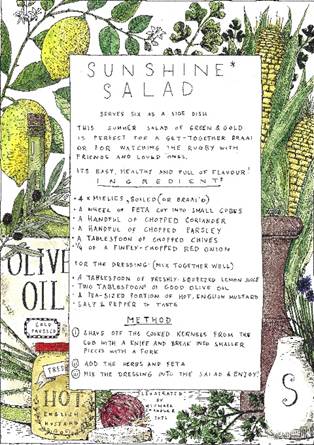 SUNSHINE*
SALAD
SERVES SIX AS A SIDE DISH
THIS SUMMER SALAD OF GREEN & GOLD
IS PERFECT FOR A GET-TOGETHER BRAAI
OR FOR WATCHING THE RUGBY WITH
FRIENDS AND LOVED ONES.
ITS EASY, HEALTHY AND FULL OF FLAVOUR!
INGREDIENTS
• 4 x MIELIES, BOILED (OR BRAAI'D)
• A WHEEL OF FETA CUT INTO SMALL CUBES
• A HANDFUL OF CHOPPED CORIANDER
• A HANDFUL OF CHOPPED PARSLEY
• A TABLESPOON OF CHOPPED CHIVES
• ¼ OF A FINELY-CHOPPED RED ONION
FOR THE DRESSING: (MIX TOGETHER WELL)
• A TABLESPOON OF FRESHLY-SQUEEZED LEMON JUICE
• TWO TABLESPOONS OF GOOD OLIVE OIL
• A TEA-SIZED PORTION OF HOT, ENGLISH MUSTARD
• SALT & PEPPER TO TASTE
METHOD
① SHAVE OFF THE COOKED KERNELS FROM THE
COB WITH A KNIFE AND BREAK INTO SMALLER
PIECES WITH A FORK
② ADD THE HERBS AND FETA
③ MIX THE DRESSING INTO THE SALAD & ENJOY!
ILLUSTRATED
BY
OLIVE
OIL
COLD
PRESSED
FRESH
HOT
ENGLISH
MUSTARD
S